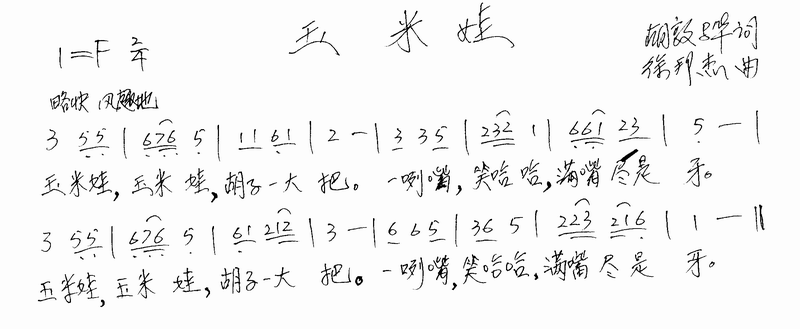 玉米娃
1=F 2/4
胡敦骅词
徐邦杰曲
略快 风趣地
3 55 | 676 5 | 11 61 | 2 — | 3 35 | 232 1 | 661 23 | 5 — |
玉米娃,玉米 娃,胡子一大 把。一咧嘴,笑哈哈,满嘴尽是 牙。
3 55 | 676 5 | 61 212 | 3 — | 6 65 | 36 5 | 223 216 | 1 — ‖
玉米娃,玉米 娃,胡子一大 把。一咧嘴,笑哈哈,满嘴尽是 牙。